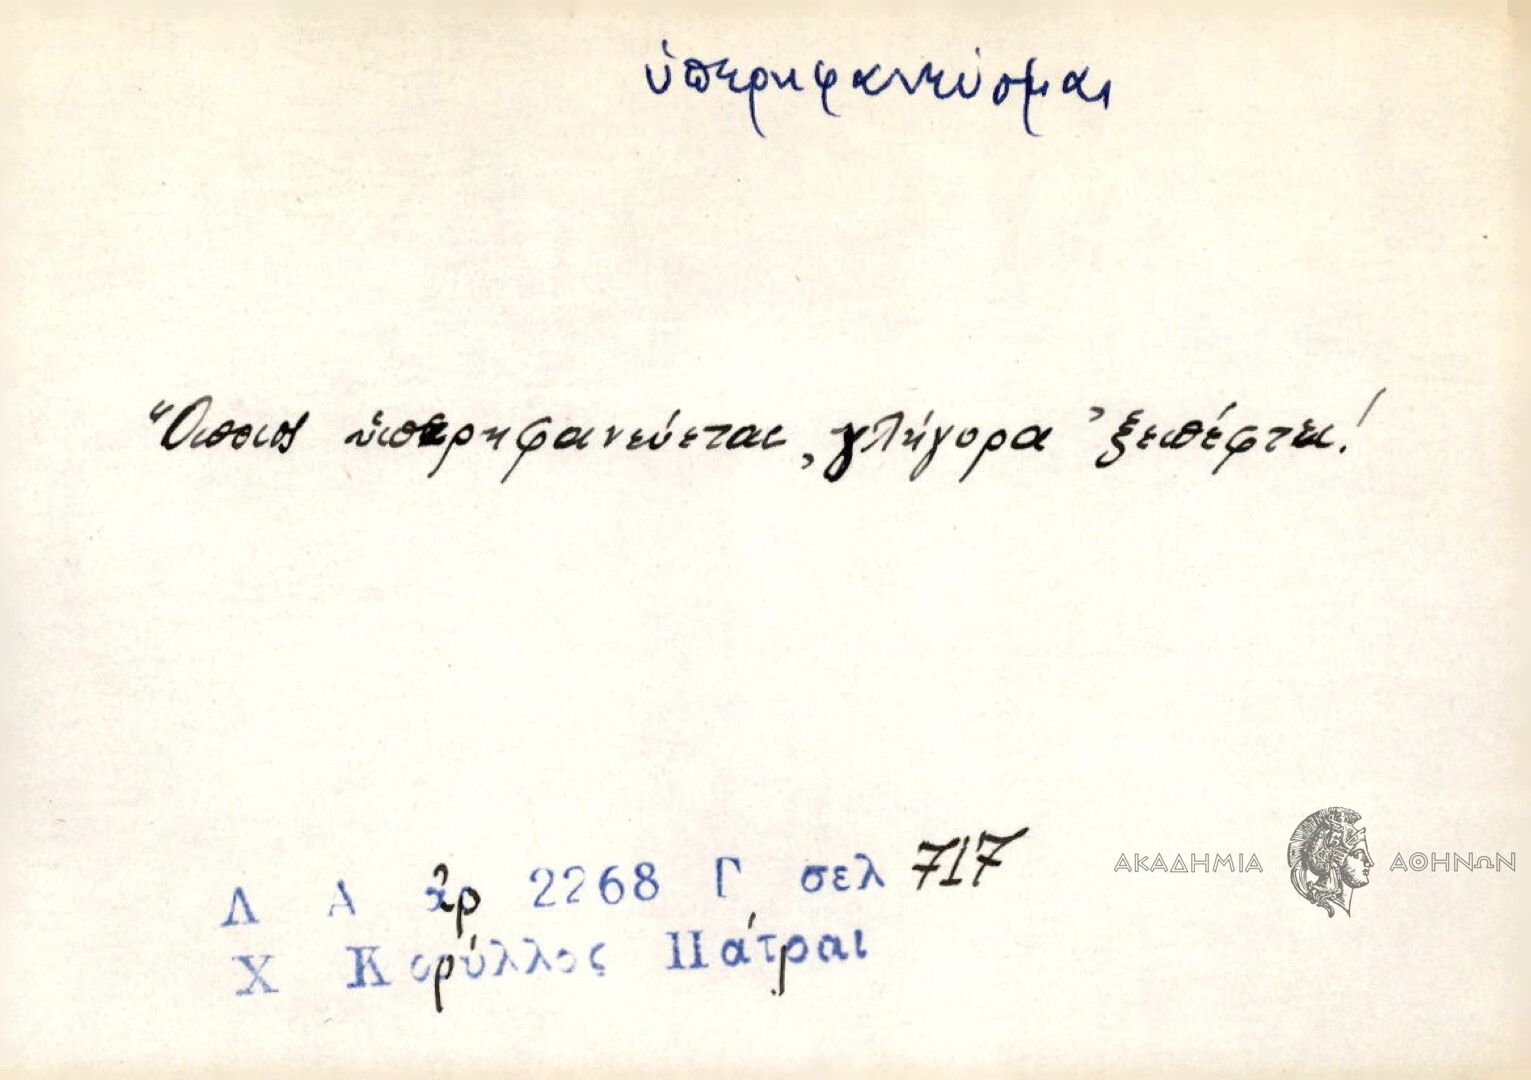 ὑπερηφανεύομαι
Ὅποιος ὑπερηφανεύεται, γλήγορα ξεπέφτει!
Λ Α ἀρ 2268 Γ σελ 717
Χ Κορύλλος Πάτραι
ΑΚΑΔΗΜΙΑ ΑΘΗΝΩΝ